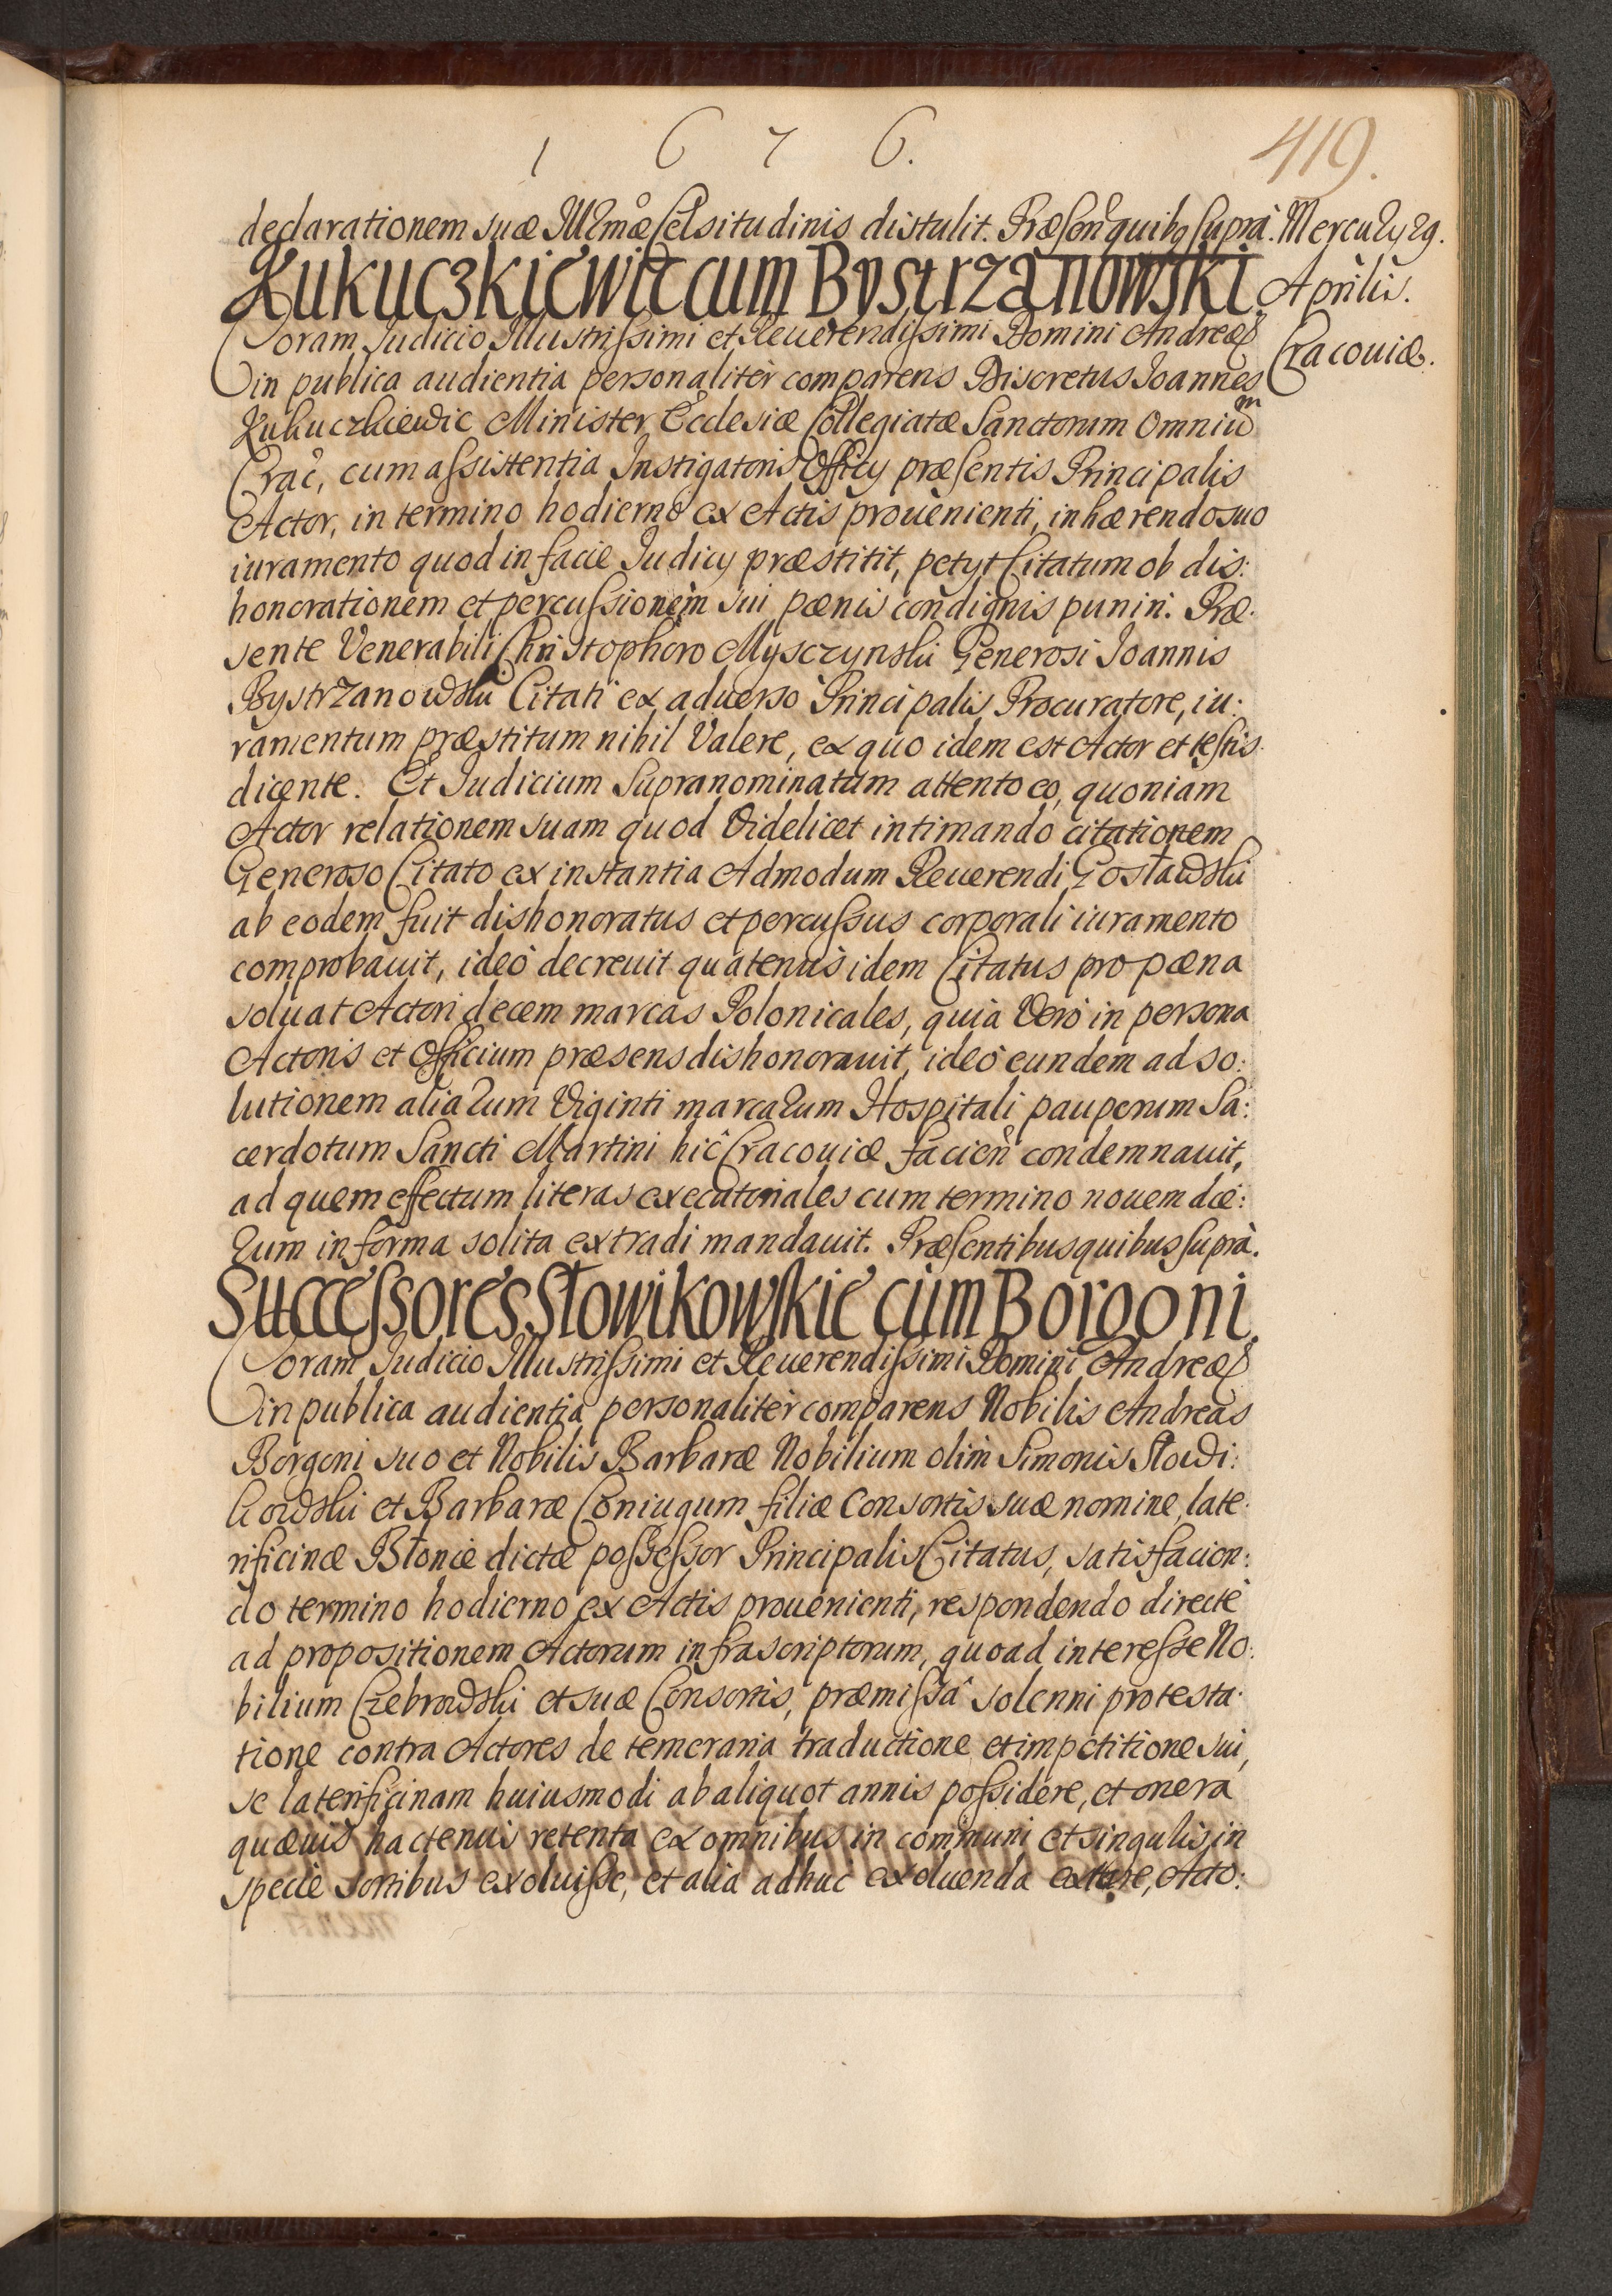 1 6 7 6.
419.
declarationem suæ Illmæ Celsitudinis distulit. Præsen quibq supra.
Mercurij 29.
Aprilis.
Cracouiæ.
Kukuczkiewic cum Bystrzanowski.
Coram Judicio Illustrissimi et Reuerendissimi Domini Andreæ
in publica audientia personalitèr comparens Discretus Joannes
Kukuczkiewic Minister Ecclesiæ Collegiatæ Sanctorum Omnium
Crac, cum assistentia Instigatoris Officij præsentis Principalis
Actor, in termino hodierno ex Actis prouenienti, inhærendo suo
iuramento quod in facie Judicij præstitit, petijt Citatum ob dis:
honorationem et percussionem sui pænis condignis puniri. Præ:
sente Venerabili Christophoro Mysczynski Generosi Joannis
Bystrzanowski Citati ex aduerso Principalis Procuratore, iu:
ramentum præstitum nihil Valere, ex quo idem est Actor et testis
dicente. Et Judicium Supranominatum attento eo, quoniam
Actor relationem suam quod Videlicet intimando citationem
Generoso Citato ex instantia Admodum Reuerendi Gostawski
ab eodem fuit dishonoratus et percussus corporali iuramento
comprobauit, ideò decreuit quatenus idem Citatus pro pæna
soluat Actori decem marcas Polonicales, quia Verò in persona
Actoris et Officium præsens dishonorauit, ideò eundem ad so:
lutionem aliarum Viginti marcarum Hospitali pauperum Sa:
cerdotum Sancti Martini hic Cracouiæ facien condemnauit,
ad quem effectum literas executoriales cum termino nouem die:
rum in forma solita extradi mandauit. Præsentibus quibus suprà.
Successores Słowikowskie cum Borgoni.
Coram Judicio Illustrissimi et Reuerendissimi Domini Andreæ
in publica audientia personalitèr comparens Nobilis Andreas
Borgoni suo et Nobilis Barbaræ Nobilium olim Simonis Słowi:
kowski et Barbaræ Coniugum filiæ Consortis suæ nomine, late:
rificinæ Błonie dictæ possessor Principalis Citatus, satisfacien:
do termino hodierno ex Actis prouenienti, respondendo directè
ad propositionem Actorum infrascriptorum, quoad interesse No:
bilium Czebrowski et suæ Consortis, præmissâ solenni protesta:
tione contra Actores de temeraria traductione et impetitione sui,
se laterificinam huiusmodi ab aliquot annis possidere, et onera
quæuis hactenus retenta ex omnibus in communi et singulis in
specie sortibus exoluisse, et alia adhuc exoluenda extare, Acto: